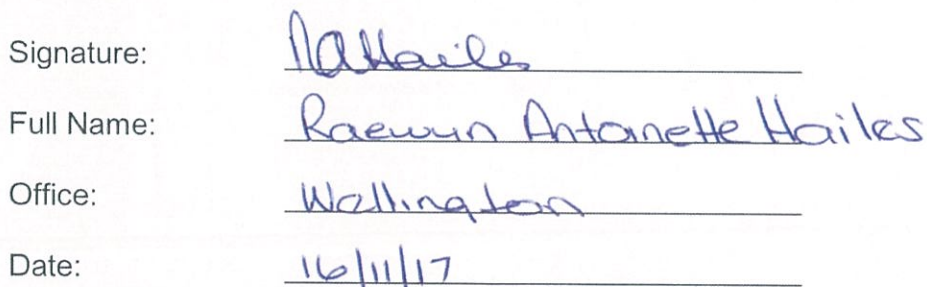 Signature: RAHailes
Full Name: Raewyn Antoinette Hailes
Office: Wellington
Date: 16/11/17